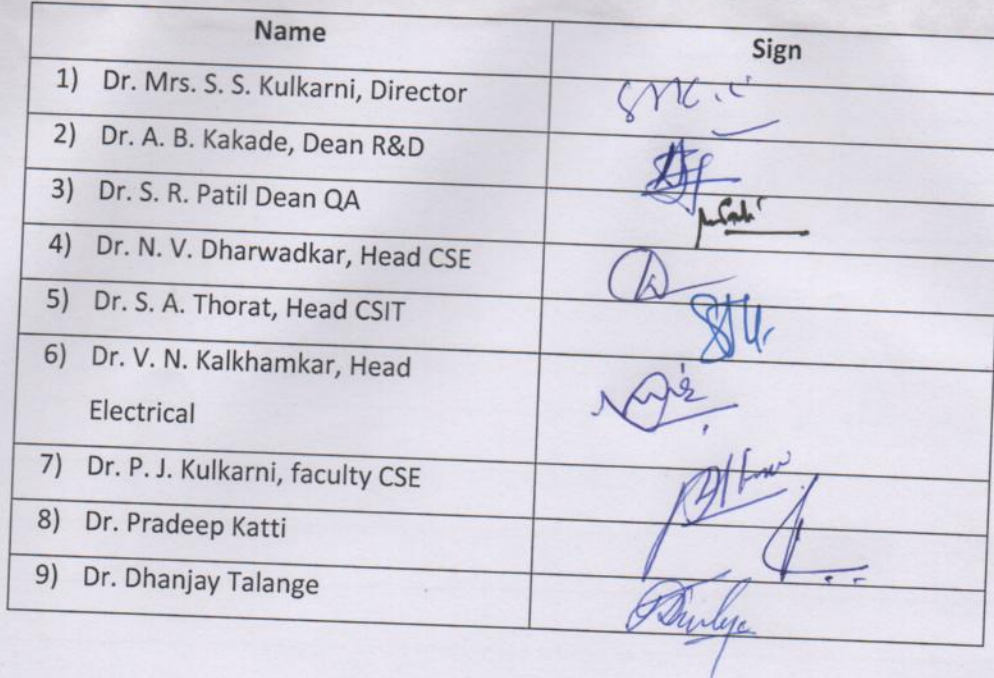 Name Sign
1) Dr. Mrs. S. S. Kulkarni, Director
2) Dr. A. B. Kakade, Dean R&D
3) Dr. S. R. Patil Dean QA
4) Dr. N. V. Dharwadkar, Head CSE
5) Dr. S. A. Thorat, Head CSIT
6) Dr. V. N. Kalkhamkar, Head
Electrical
7) Dr. P. J. Kulkarni, faculty CSE
8) Dr. Pradeep Katti
9) Dr. Dhanjay Talange